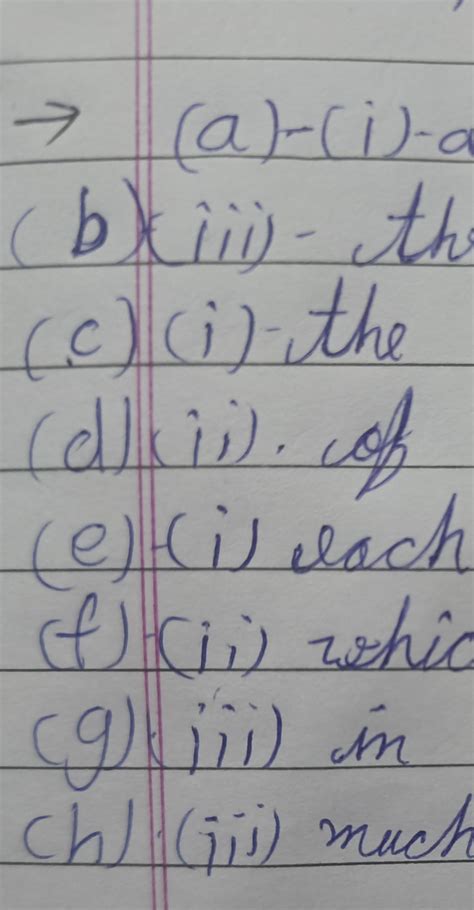 → (a)-(i)-a
(b)(iii)- the
(c)(i)-the
(d)(ii). of
(e)-(i) each
(f)-(ii) whic
(g)(iii) in
(h).(iii) much